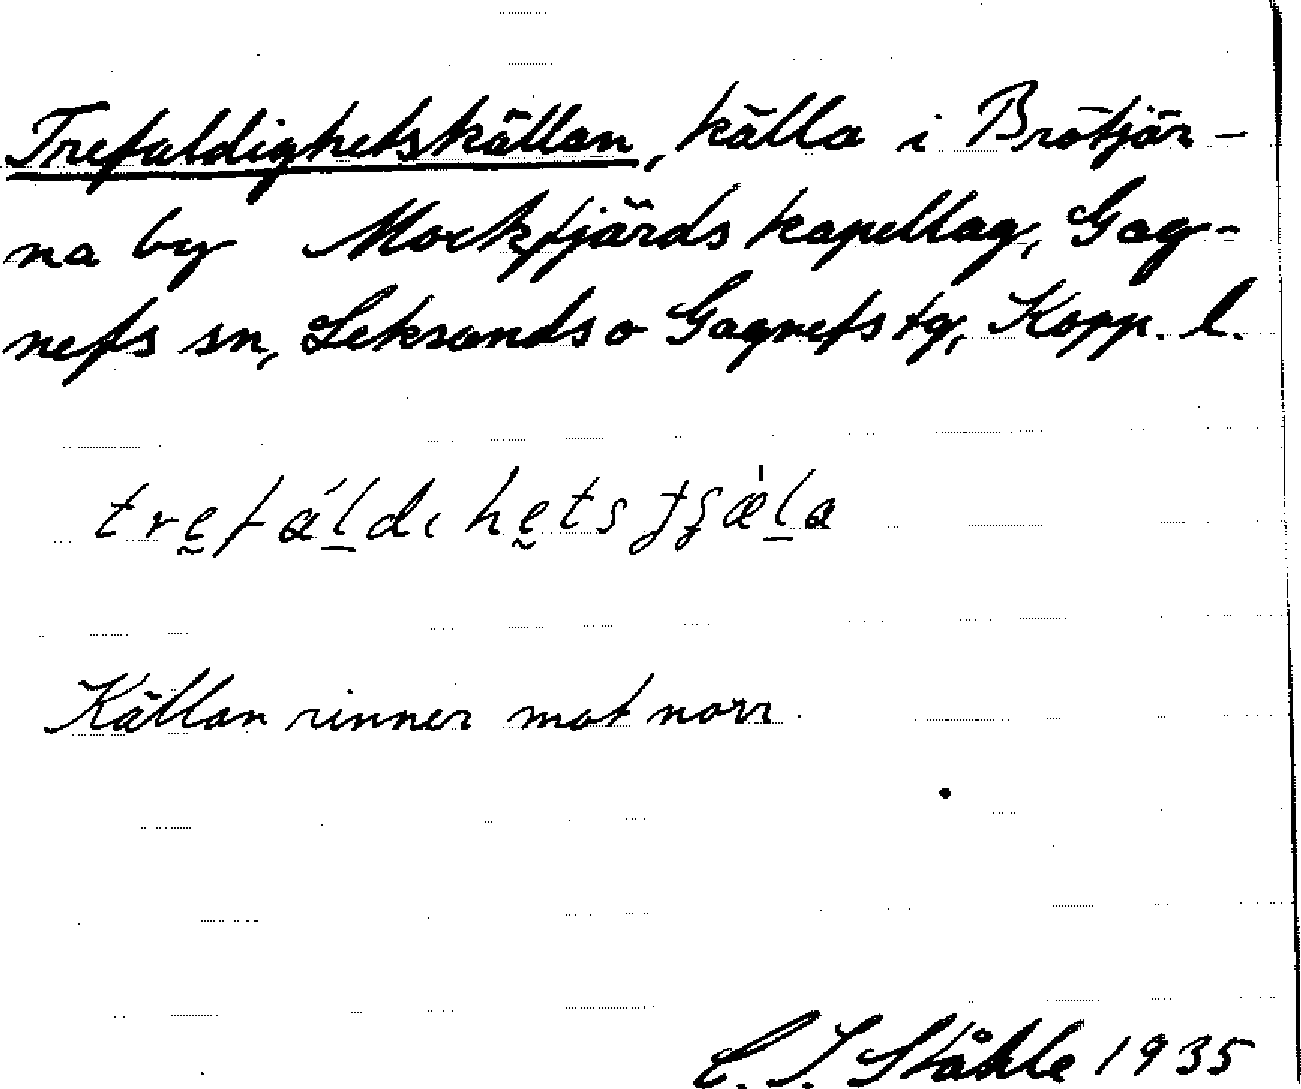 Trefaldighetskällan, källa i Brötjär-
na by Mockfjärds kapellag, Gag-
nefs sn, Leksands o Gagnefs tg, Kopp. l.
Källan rinner mot norr.
C. I. Ståhle 1935